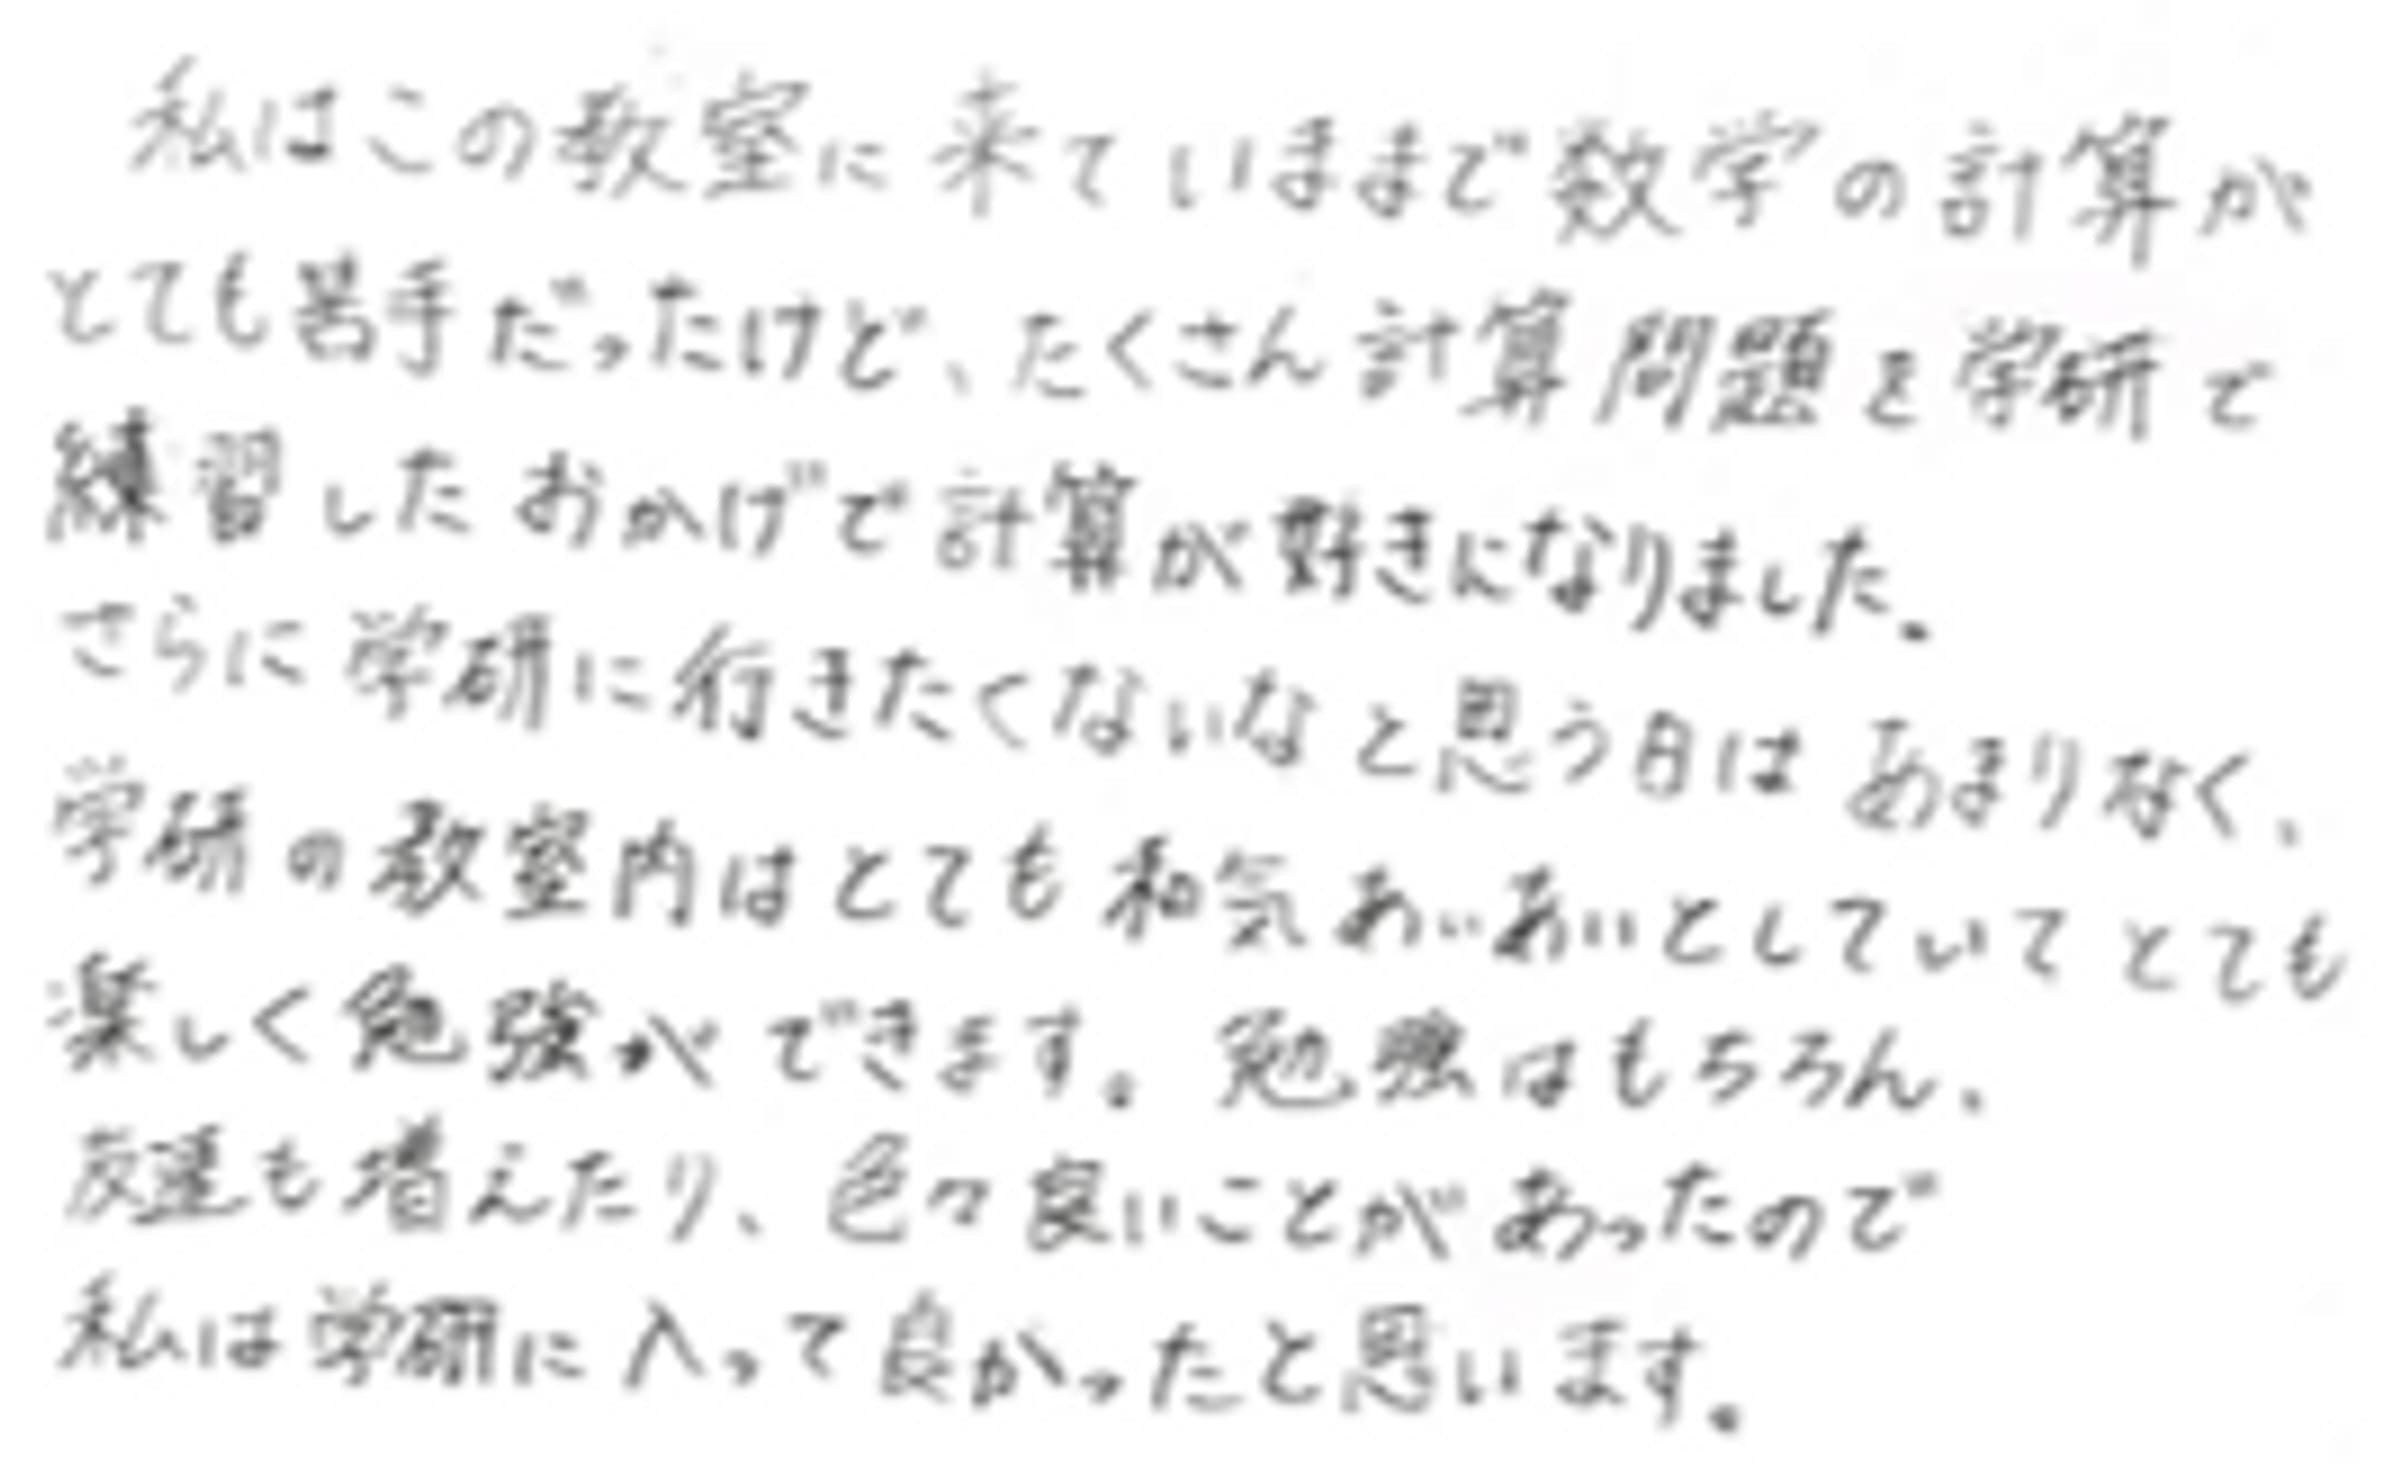 私はこの教室に来ていままで数学の計算が
とても苦手だったけど、たくさん計算問題を学研で
練習したおかげで計算が好きになりました。
さらに学研に行きたくないなと思う日はあまりなく、
学研の教室内はとても和気あいあいとしていてとても
楽しく勉強ができます。勉強はもちろん、
友達も増えたり、色々良いことがあったので
私は学研に入って良かったと思います。